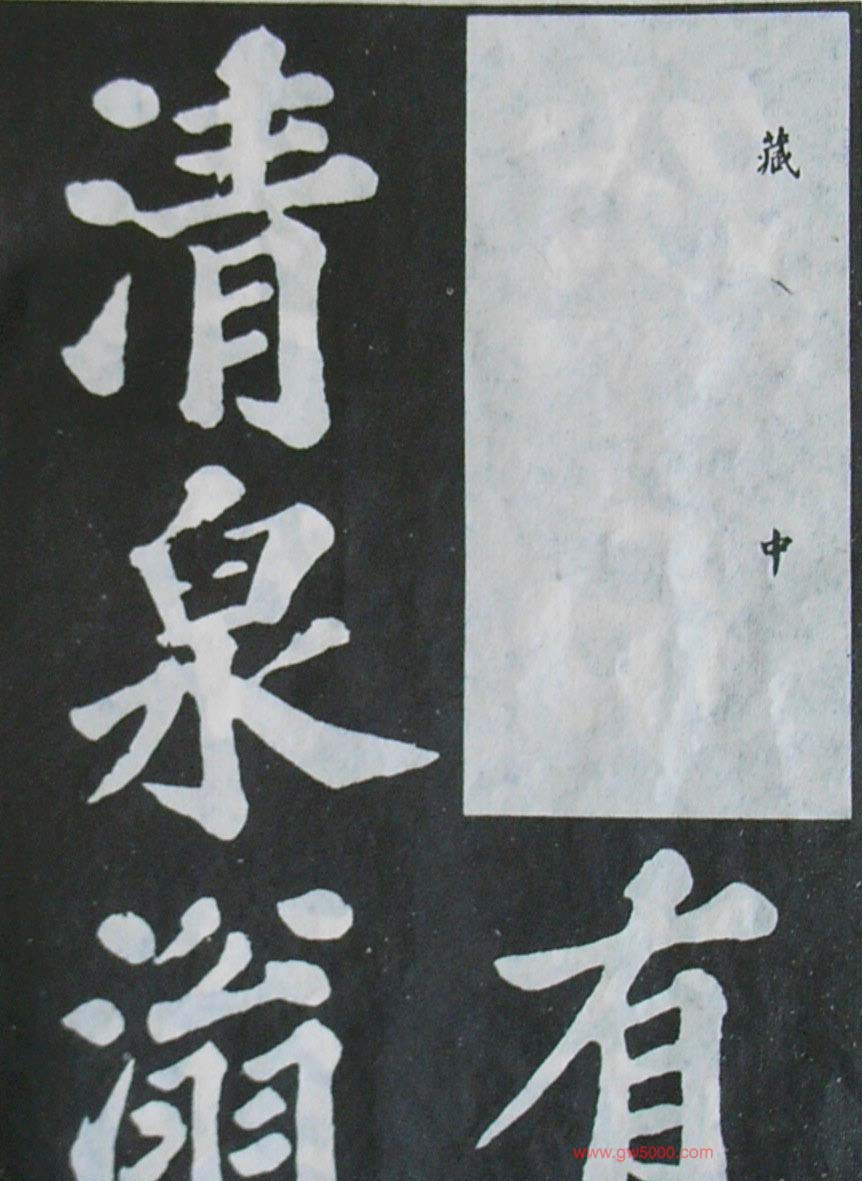 藏
中
有
清泉滃
www.gw5000.com